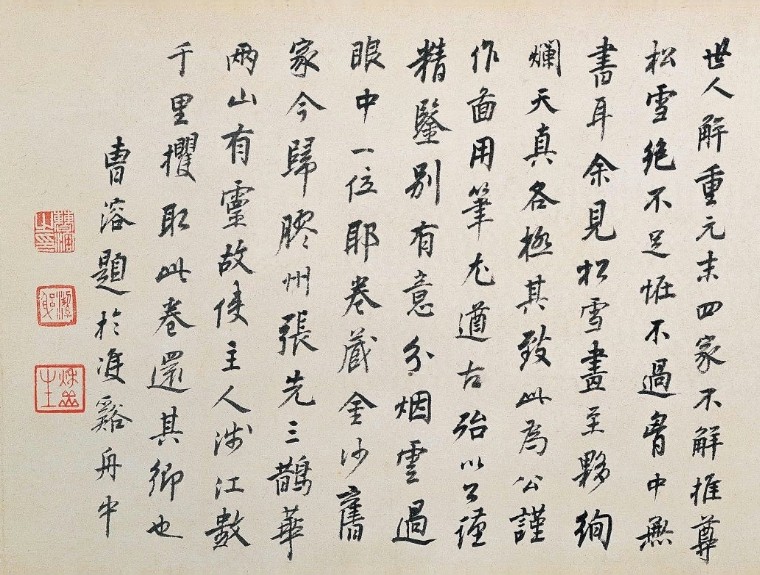 世人解重元末四家不解推尊
松雪絶不足恠不過胷中無
書耳余見松雪畫至夥絢
爛天真各極其致此為公謹
作畵用筆尤遒古殆以公謹
精鑒別有意分烟雲過
眼中一位耶卷藏金沙舊
家今歸膠州張先三鵲華
兩山有靈故使主人涉江數
千里攫取此卷還其鄉也
曹溶題於雙谿舟中
曹溶之印
潔躬